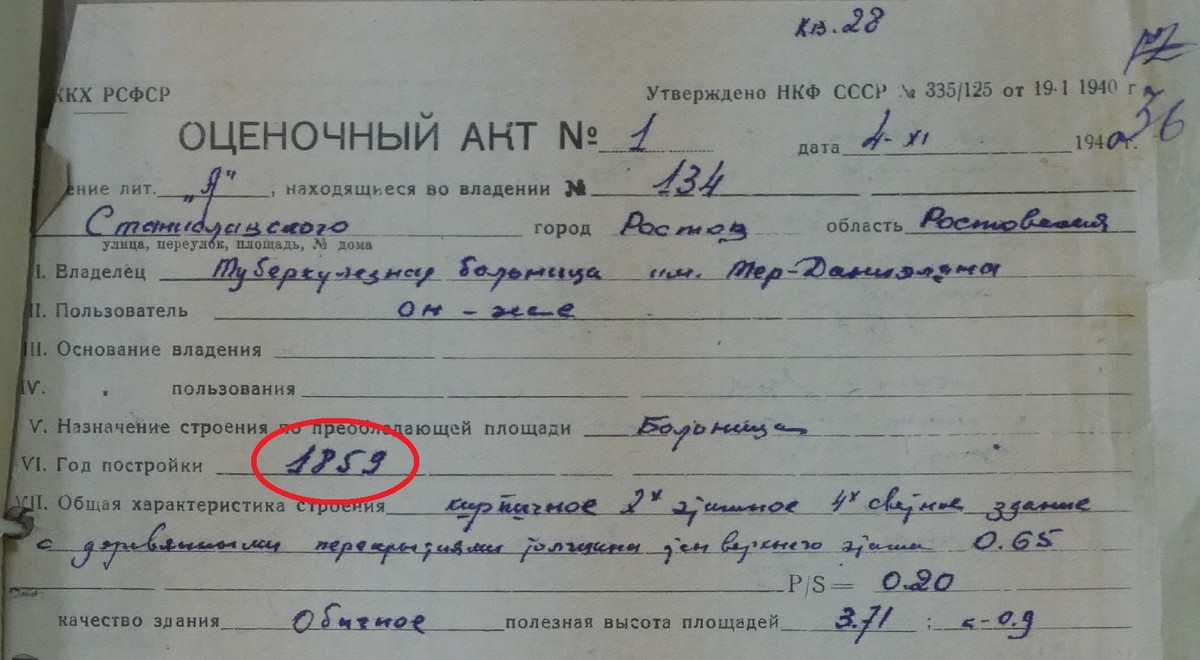 кв. 28
КХ РСФСР
Утверждено НКФ СССР № 335/125 от 19·1 1940 г
36
ОЦЕНОЧНЫЙ АКТ № 1 дата 4-XI 1940 г.
ение лит. „Я", находящиеся во владении № 134
Станиславского город Ростов область Ростовская
улица, переулок, площадь, № дома
I. Владелец Туберкулезная больница им. Тер-Даниэляна
II. Пользователь он - же
III. Основание владения
IV. " пользования
V. Назначение строения по преобладающей площади Больница
VI. Год постройки 1859
VII. Общая характеристика строения кирпичное 2х этажное 4х светное здание
с деревянными перекрытиями толщина стен верхнего этажа 0.65
P/S = 0.20
качество здания Обычное полезная высота площадей 3.71 ; к-0.9